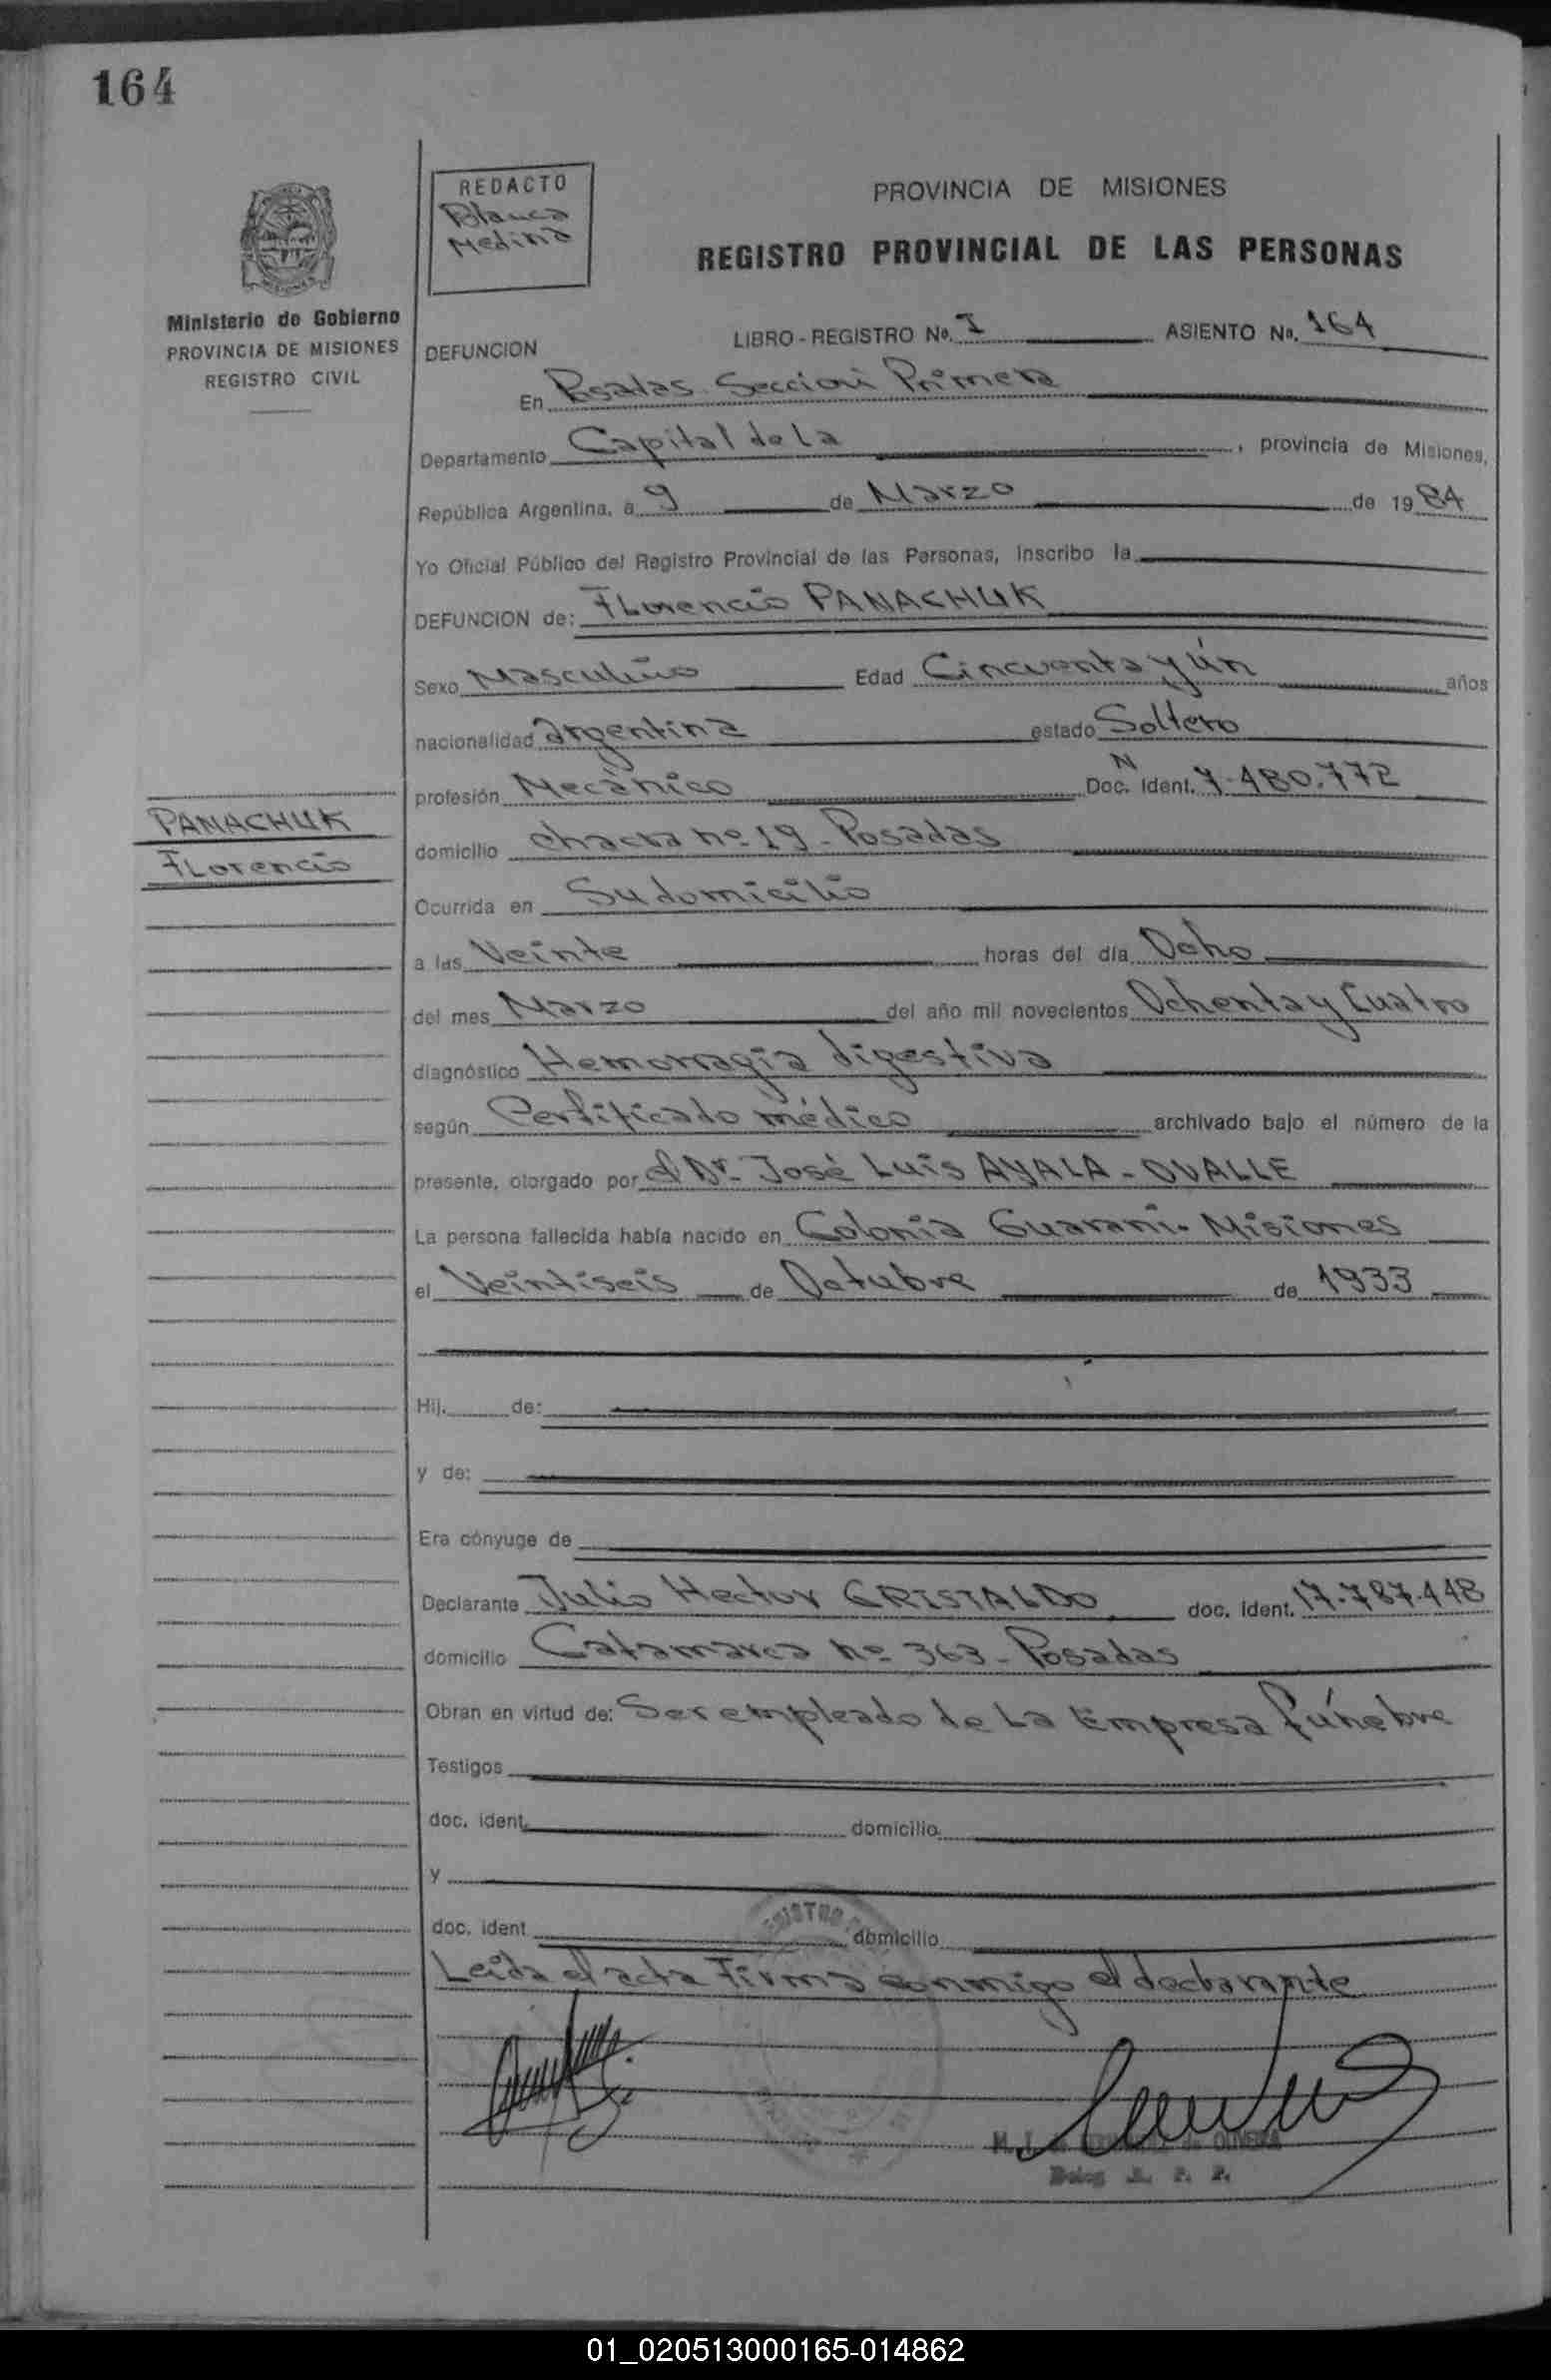 164
REDACTO
Blanca
Medina
PROVINCIA DE MISIONES
REGISTRO PROVINCIAL DE LAS PERSONAS
Ministerio de Gobierno
PROVINCIA DE MISIONES
REGISTRO CIVIL
DEFUNCION
LIBRO - REGISTRO No. I ASIENTO No. 164
En Posadas Sección Primera
Departamento Capital de la , provincia de Misiones,
República Argentina, a 9 de Marzo de 1984
Yo Oficial Público del Registro Provincial de las Personas, inscribo la
DEFUNCION de: Florencio PANACHUK
Sexo Masculino Edad Cincuenta y ún años
nacionalidad argentina estado Soltero
profesión Mecánico Doc. N Ident. 7.480.772
PANACHUK
Florencio
domicilio chacra no 19 - Posadas
Ocurrida en Su domicilio
a las Veinte horas del día Ocho
del mes Marzo del año mil novecientos Ochenta y Cuatro
diagnóstico Hemorragia digestiva
según Certificado médico archivado bajo el número de la
presente, otorgado por el Dr. José Luis AYALA - OVALLE
La persona fallecida había nacido en Colonia Guaraní. Misiones
el Veintiseis de Octubre de 1933
Hij. de:
y de:
Era cónyuge de
Declarante Julio Hector CRISTALDO doc. ident. 17.787.448
domicilio Catamarca no 363 - Posadas
Obran en virtud de: Ser empleado de La Empresa fúnebre
Testigos
doc. ident. domicilio
y
doc. ident. domicilio
Leída el acta Firma conmigo el declarante
de OLIVERA
Deleg. R. P. P.
01_020513000165-014862